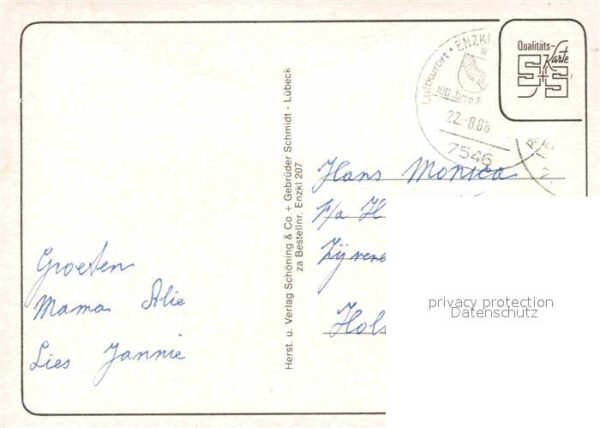 Qualitäts-
Karte
Luftkurort · ENZKL
22.-8.86
7546
Hans Monica
p/a H
Zyvene
Hols
Groeten
Mama Alie
Lies Jannie
Herst. u. Verlag Schöning & Co + Gebrüder Schmidt - Lübeck
za Bestellnr. Enzkl 207
privacy protection
Datenschutz